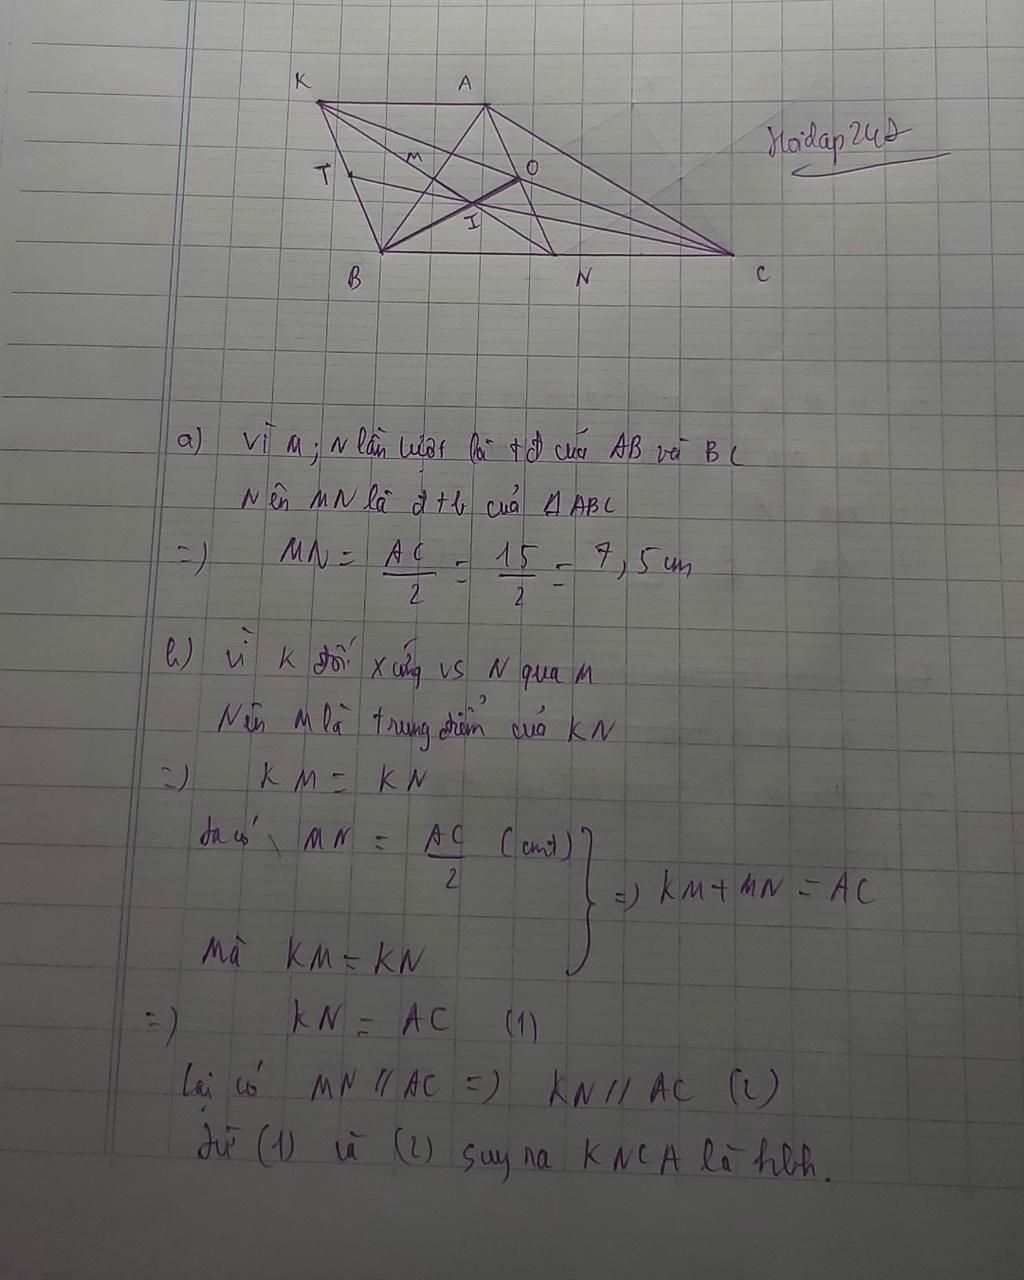 K A
Hoidap247
M O
T
I
B N C
a) Vì M; N lần lượt là tđ của AB và BC
Nên MN là đtb của Δ ABC
=) MN = AC/2 = 15/2 = 7,5 cm
b) Vì K đối xứng vs N qua M
Nên M là trung điểm của KN
=) KM = KN
Ta có MN = AC/2 (cmt)
=) KM + MN = AC
Mà KM = KN
=) KN = AC (1)
Lại có MN // AC =) KN // AC (2)
Từ (1) và (2) suy ra KNCA là hbh.